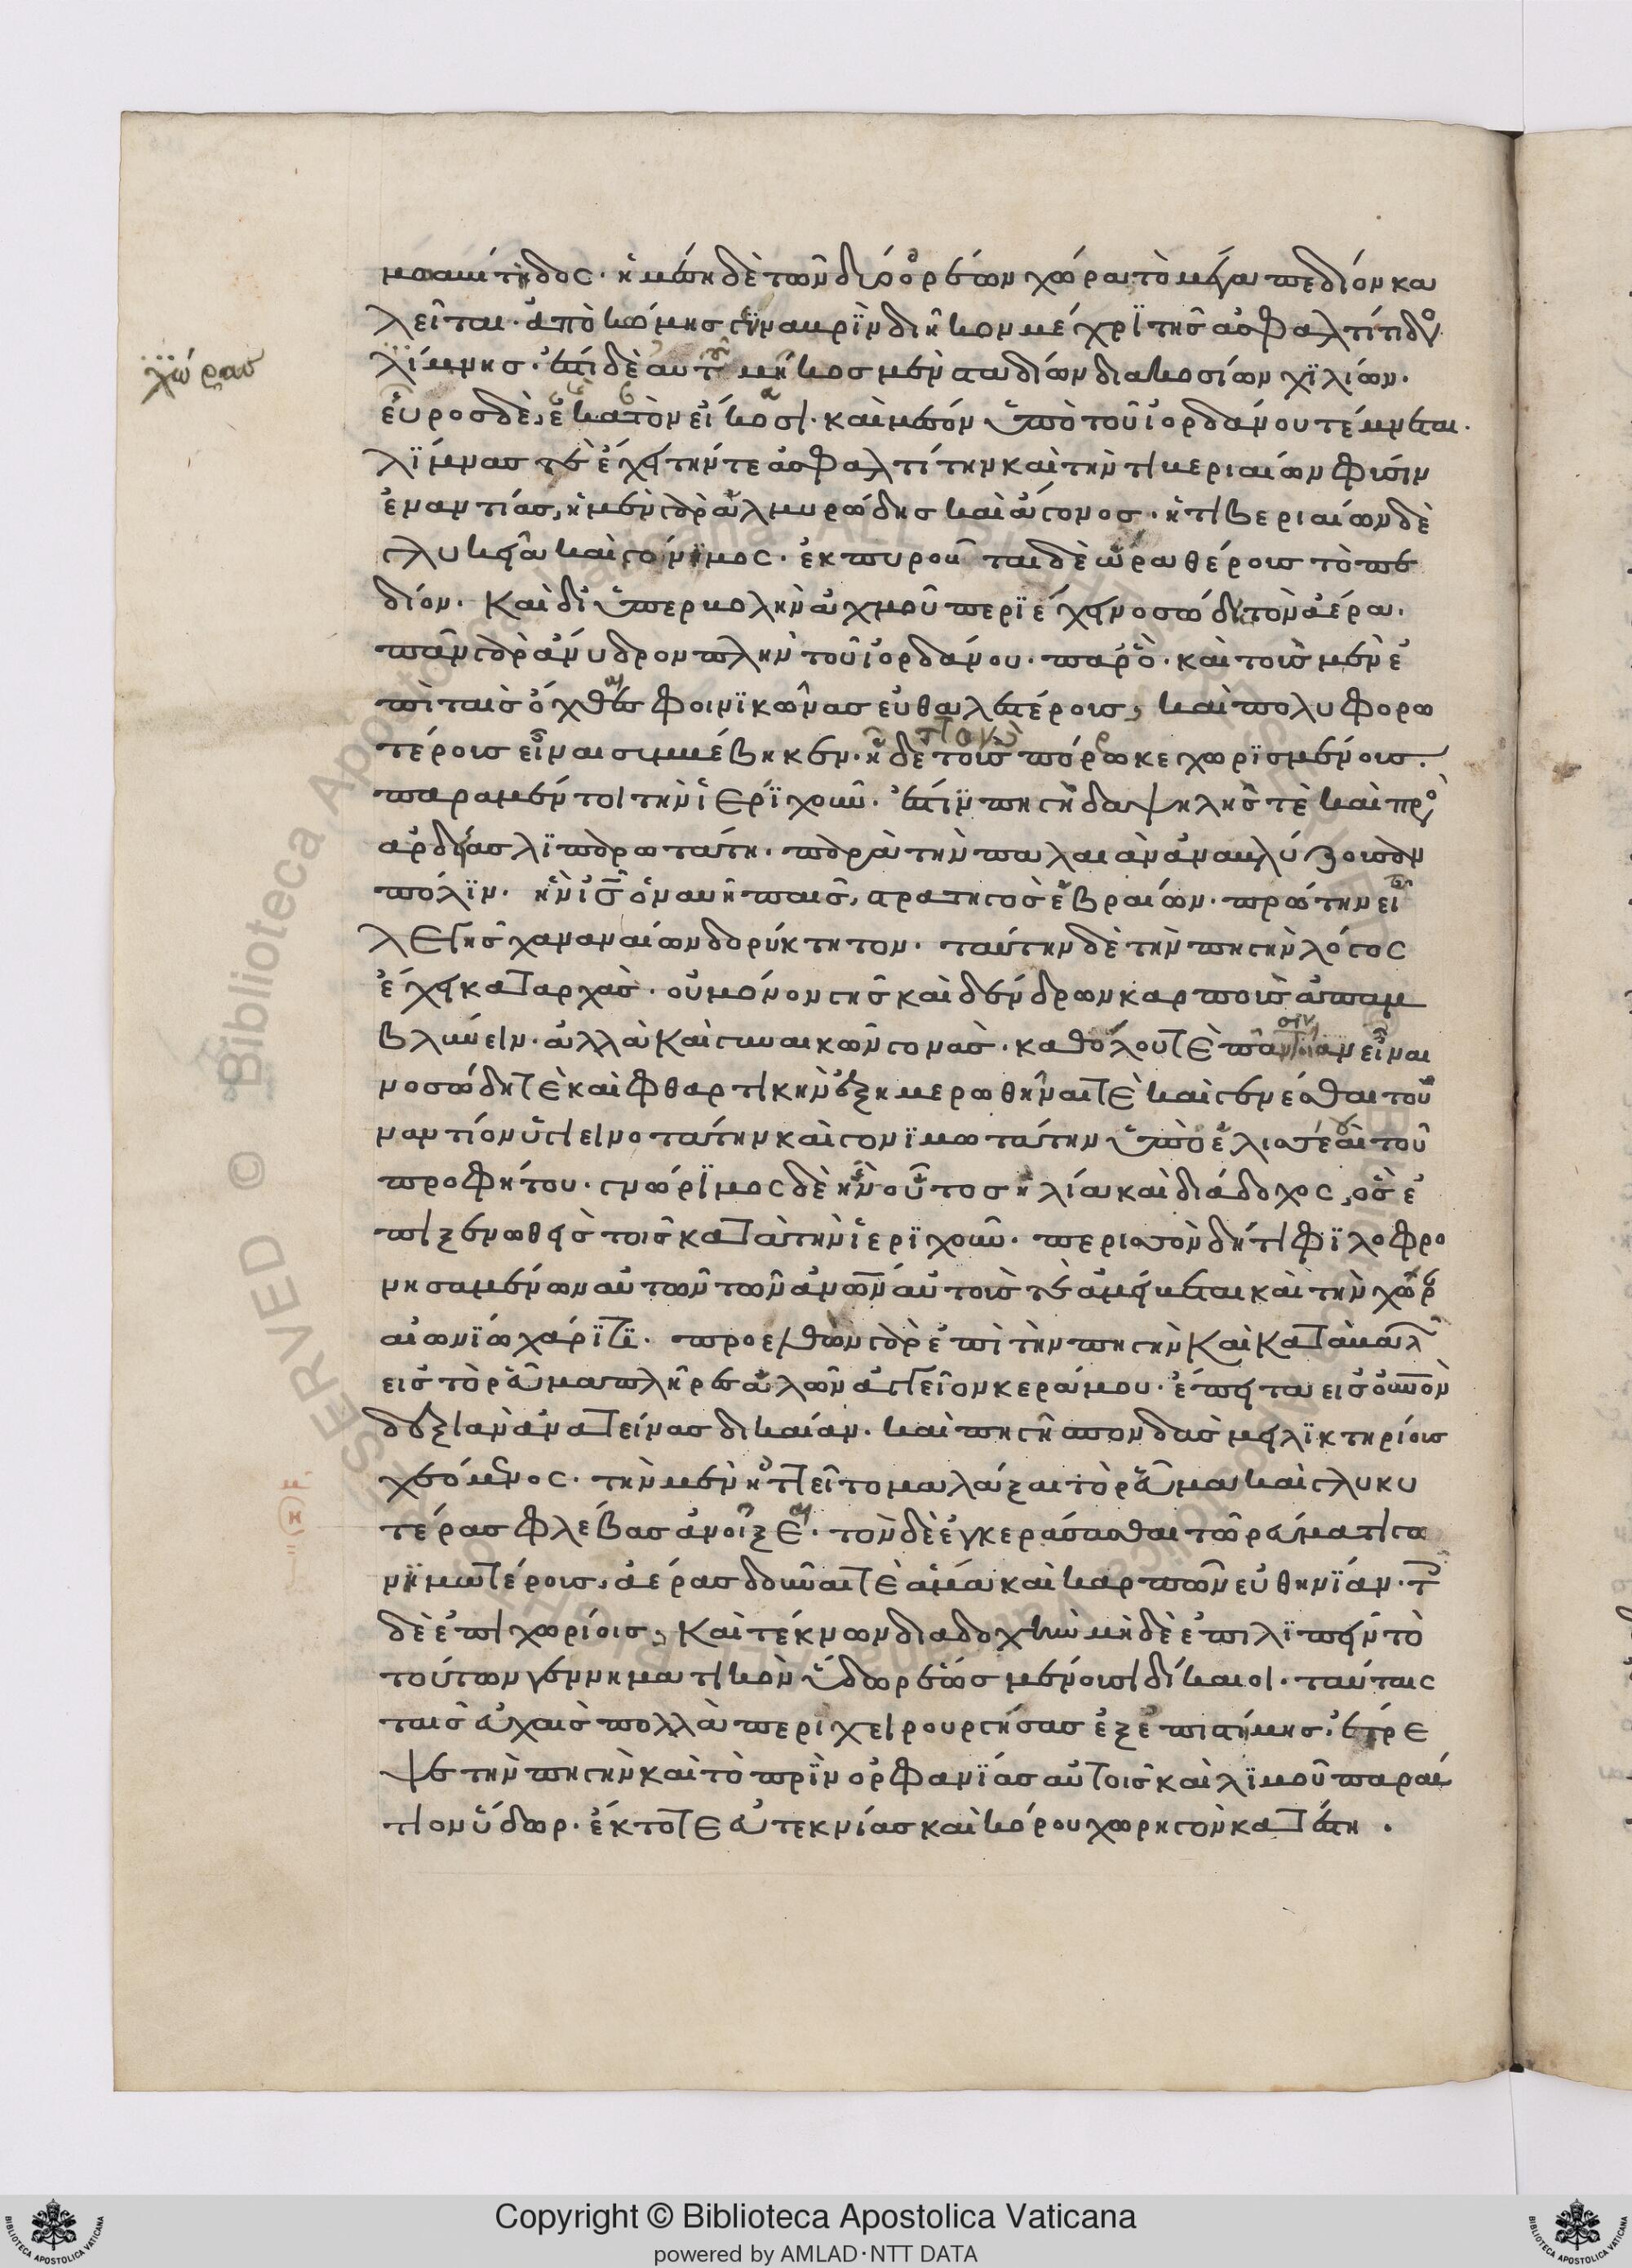 μωαβίτιδος· ἡ μέση δὲ τῶν δύο ὀρέων χώρα τὸ μέγα πεδίον κα
λεῖται· ἀπὸ κώμης γϊνναβρῒν διῆκον μέχρϊ τῆς ἀσφαλτίτιδος
λίμνης· ἔστι δὲ αὐτῆς μῆκος μὲν σταδίων διακοσίων χϊλίων·
χώρας
εὖρος δὲ, ἑκατὸν εἴκοσι· καὶ μέσον ὑπὸ τοῦ ἰορδάνου τέμνεται·
λΐμνας τὲ ἔχει τήν τε ἀσφαλτίτην καὶ τὴν τιβεριαίων φύσϊν
ἐναντίας, ἡ μὲν γὰρ ἁλμυρώδης καὶ ἄγονος· ἡ τιβεριαίων δὲ
γλυκεῖα καὶ γόνϊμος· ἐκπυροῦται δὲ ὥρα θέρους τὸ πε
δίον· καὶ δι ὑπερβολὴν αὐχμοῦ περϊέχει νοσώδη τὸν ἀέρα·
πᾶν γὰρ ἄνυδρον πλὴν τοῦ ἰορδάνου· παρὸ· καὶ τοὺς μὲν ἐ
πὶ ταῖς ὄχθαις φοινϊκῶνας εὐθαλεστέρους, καὶ πολυφορω
τέρους εἶναι συμβέβηκεν· ἧττον δὲ τοὺς πόρρω κεχωρϊσμένους·
παρὰ μέν τοι τὴν ἱερϊχοῦν· ἐστϊν πηγὴ δαψηλής τὲ καὶ πρὸς
ἀρδείας λϊπαρωτάτη· παρὰ τὴν παλαιὰν ἀναβλύζουσαν
πόλϊν· ἣν ἰ̅ς̅ ὁ ναυῆ παῖς, στρατηγὸς ἑβραίων· πρώτην εἷ
λε γῆς χαναναίων δορύκτητον· ταύτην δὲ τὴν πηγὴν λόγος
ἔχει κατ αρχὰς· οὐ μόνον γῆς καὶ δένδρων καρποὺς ἀπαμ
βλύνειν· ἀλλὰ καὶ γυναικῶν γονὰς· καθόλου τὲ πᾶσιν εἶναι
νοσώδη τὲ καὶ φθαρτικὴν ἐξημερωθῆναι τὲ καὶ γενέσθαι τοὺ
ναντίον ὑγιεινοτάτην καὶ γονϊμωτάτην ὑπὸ ἑλισσέου τοῦ
προφήτου· γνώρϊμος δὲ ἦν οὗτος ἡλία καὶ διάδοχος, ὃς ἐ
πιξενωθεὶς τοῖς κατὰ τὴν ἱερϊχοῦν· περισσὸν δή τι φϊλοφρο
νησαμένων αὐτὸν τῶν ἀνῶν αὐτούς τὲ ἀμείβεται καὶ τὴν χώρ
αἰωνϊω χάρϊτϊ· προελθὼν γὰρ ἐπὶ τὴν πηγὴν καὶ καταβαλ
εἰς τὸ ῥεῦμα πλῆρες ἁλῶν ἀγγεῖον κεράμου· ἔπειτα εἰς οὐνὸν
δεξιὰν ἀνατείνας δικαίαν· καὶ πηγῇ σπονδὰς μειλϊκτηρίους
χεόμενος· τὴν μὲν ᾐτεῖτο μαλάξαι τὸ ῥεῦμα καὶ γλυκυ
τέρας φλέβας ἀνοῖξαι· τὸν δὲ ἐγκεράσασθαι τῶ ῥεύματι γο
νϊμωτέρους, ἀέρας δοῦναί τε ἅμα καὶ καρπῶν εὐθηνϊαν· τοῖς
δὲ ἐπιχωρίοις, καὶ τέκνων διαδοχὴν μὴ δὲ ἐπιλϊπεῖν τὸ
τούτων γεννηματικὸν ὕδωρ ἕως μένουσι δίκαιοι· ταύταις
ταῖς εὐχαῖς πολλὰ περιχειρουργήσας ἐξ ἐπιστήμης· ἔτρε
ψε τὴν πηγὴν καὶ τὸ πρῒν ὀρφανϊας αὐτοῖς καὶ λϊμοῦ παραί
τιον ὕδωρ· ἔκτοτε εὐτεκνίας καὶ κόρου χωρηγὸν κατέστη·